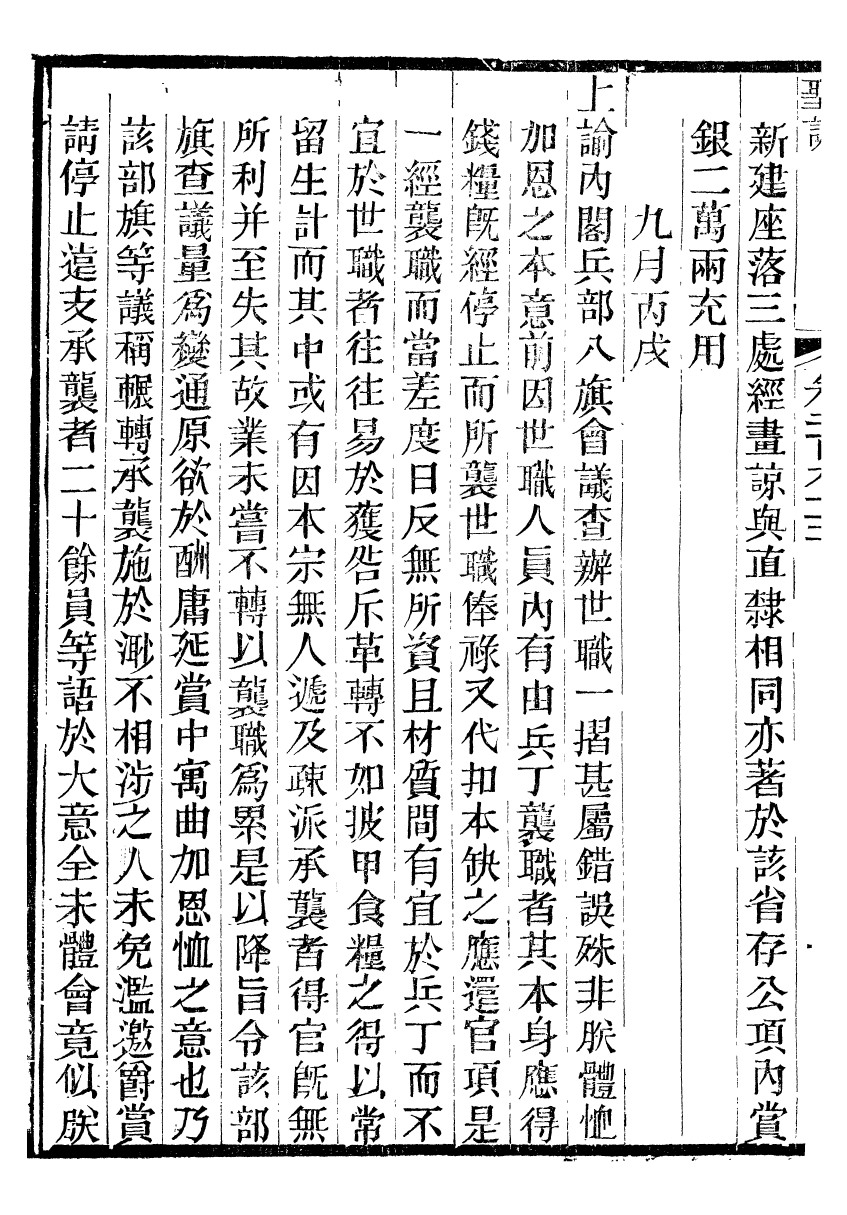 新建座落三處經畫諒與直隸相同亦著於該省存公項內賞
銀二萬兩充用
九月丙戌
上諭內閣兵部八旗會議查辦世職一摺甚屬錯誤殊非朕體恤
加恩之本意前因世職人員內有由兵丁襲職者其本身應得
錢糧旣經停止而所襲世職俸祿又代扣本缺之應還官項是
一經襲職而當差度日反無所資且材質間有宜於兵丁而不
宜於世職者往往易於獲咎斥革轉不如披甲食糧之得以常
留生計而其中或有因本宗無人遞及疎派承襲者得官旣無
所利并至失其故業未嘗不轉以襲職爲累是以降旨令該部
旗查議量爲變通原欲於酬庸延賞中寓曲加恩恤之意也乃
該部旗等議稱輾轉承襲施於渺不相涉之人未免濫邀爵賞
請停止遠支承襲者二十餘員等語於大意全未體會竟似朕